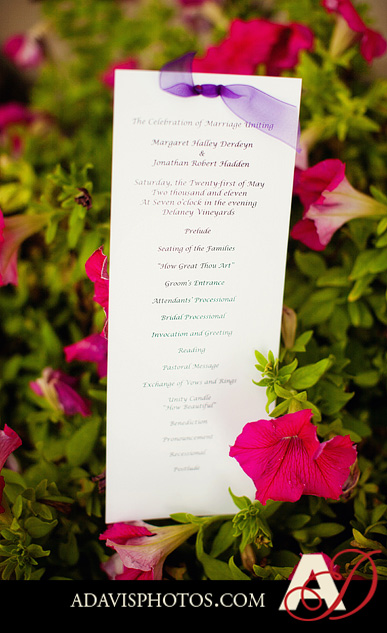 The Celebration of Marriage Uniting
Margaret Halley Derdeyn
&
Jonathan Robert Hadden
Saturday, the Twenty-first of May
Two thousand and eleven
At Seven o'clock in the evening
Delaney Vineyards
Prelude
Seating of the Families
"How Great Thou Art"
Groom's Entrance
Attendants' Processional
Bridal Processional
Invocation and Greeting
Reading
Pastoral Message
Exchange of Vows and Rings
Unity Candle
"How Beautiful"
Benediction
Pronouncement
Recessional
Postlude
ADAVISPHOTOS.COM
AD